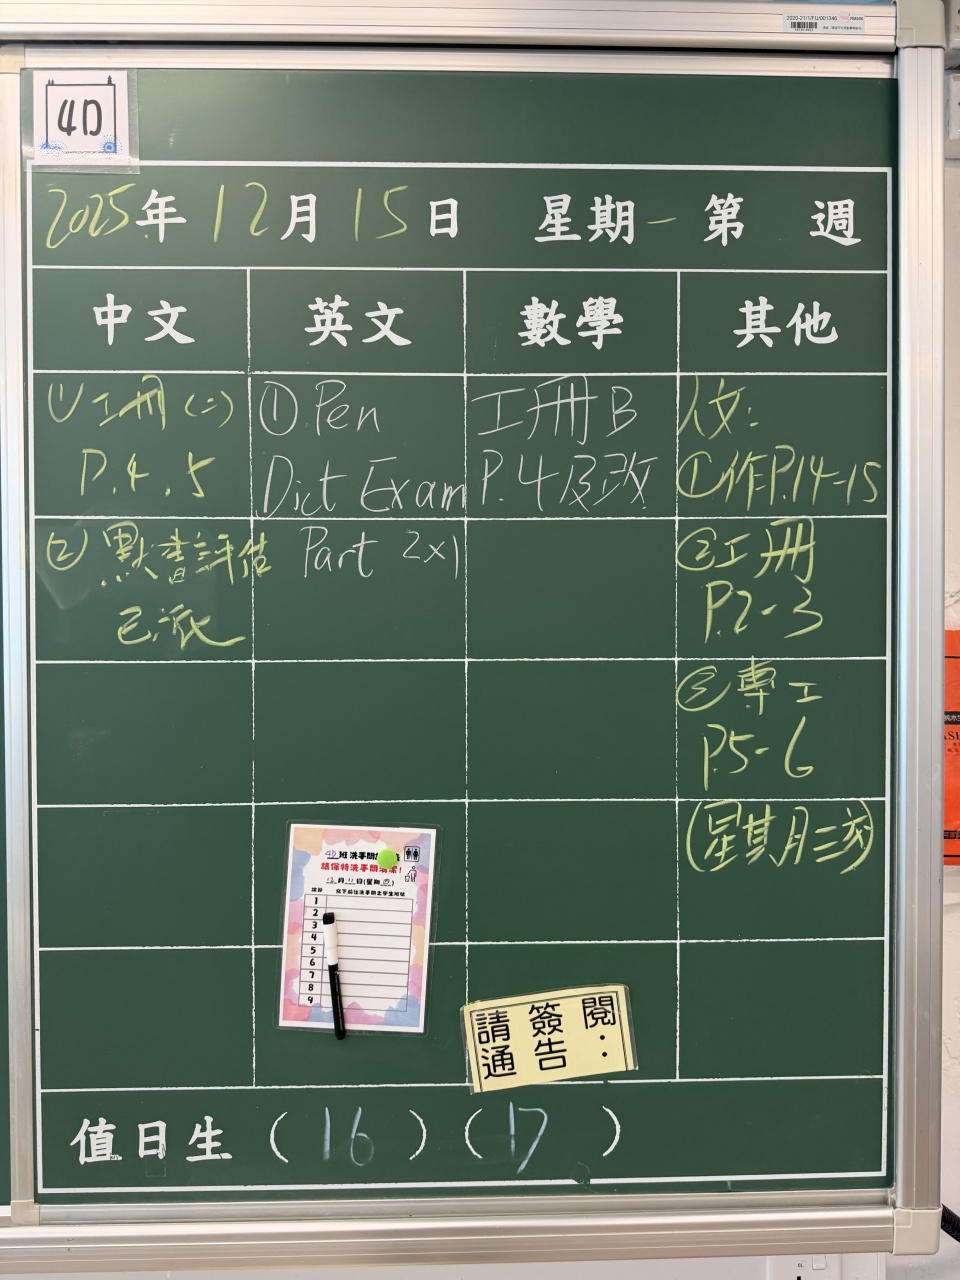 2020-21/1/FU/001346
4D
2025年12月15日 星期一 第 週
中文 英文 數學 其他
① 工冊(二)
P.4,5
② 默書評估
已派
① Pen
Dict Exam
Part 2x1
工冊B
P.4及改
人文:
①作P.14-15
②工冊
P.2-3
③專工
P.5-6
(星期二交)
4D班洗手間
請保持洗手間清潔!
12月11日(星期四)
課節 寫下前往洗手間之學生班號
1
2
3
4
5
6
7
8
9
請簽閱
通告:
值日生(16)(17)